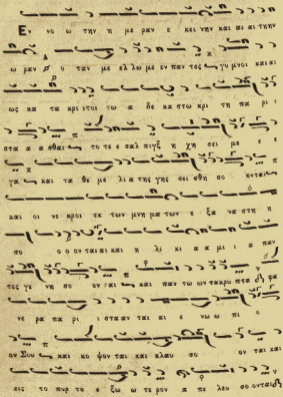 Εν νο ω την η με ραν ε κει νην και αι τη ην
ω ραν ο ταν με ελ λω με εν παν τες γυ μνοι και αι
ως κα τα κρι τοι τω α δε κα στω κρι τη πα ρι
στα α α σθαι το τε ε σαλ πιγξ η χη σει με ε
γα και τα θε με λι α της γης σει σθη σο ονται
και οι νε κροι εκ των μνη μα των ε ξα να στη η
σο ο ο ονται αι και η λι κι α α μι ι α παν
τες γε νη σο ον ται και παν τω ων τα κρυ πτα φα
νε ρα πα ρι ι σταν ται αι ε νω ω πι ο
ον Σου και κο ψον ται και κλαυ σο ον ται και
εις το πυρ το ε ξω ω τε ρον α πε λευ σο ονται